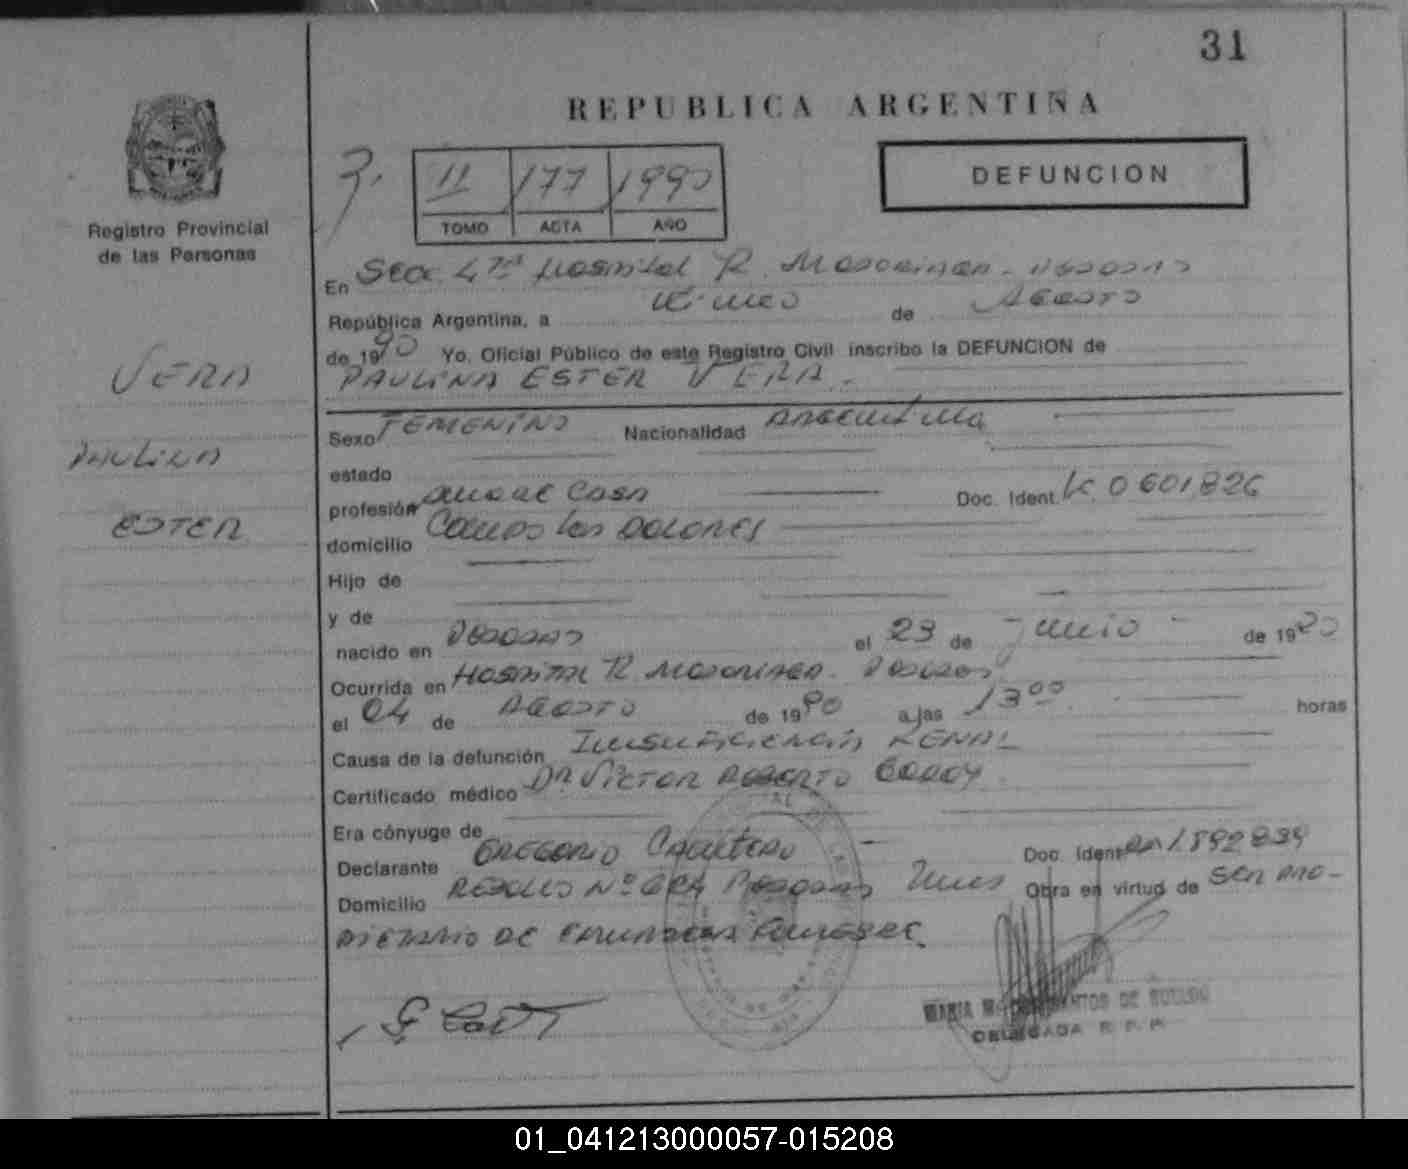 31
REPUBLICA ARGENTINA
DEFUNCION
11 177 1990
TOMO ACTA AÑO
Registro Provincial
de las Personas
En Secc. 4ta Hospital R. Madariaga - Posadas
República Argentina, a de Agosto
de 1990 Yo, Oficial Público de este Registro Civil inscribo la DEFUNCION de
PAULINA ESTER VERA.
VERA
PAULINA
ESTER
Sexo FEMENINO Nacionalidad Argentina
estado
profesión ama de Casa Doc. Ident. 0601826
domicilio Campo Las DOLORES
Hijo de
y de
nacido en Posadas el 23 de Junio de 1920
Ocurrida en Hospital R. Madariaga. Posadas
el 04 de Agosto de 1990 a las 13 00 horas
Causa de la defunción Insuficiencia RENAL
Certificado médico Dr. Victor Roberto
Era cónyuge de
Declarante GREGORIO Doc. Ident. 1892839
Domicilio Nº Posadas Obra en virtud de ser pro-
pietario de Funebre.
MARIA SANTOS DE
DELEGADA R. P. P.
01_041213000057-015208